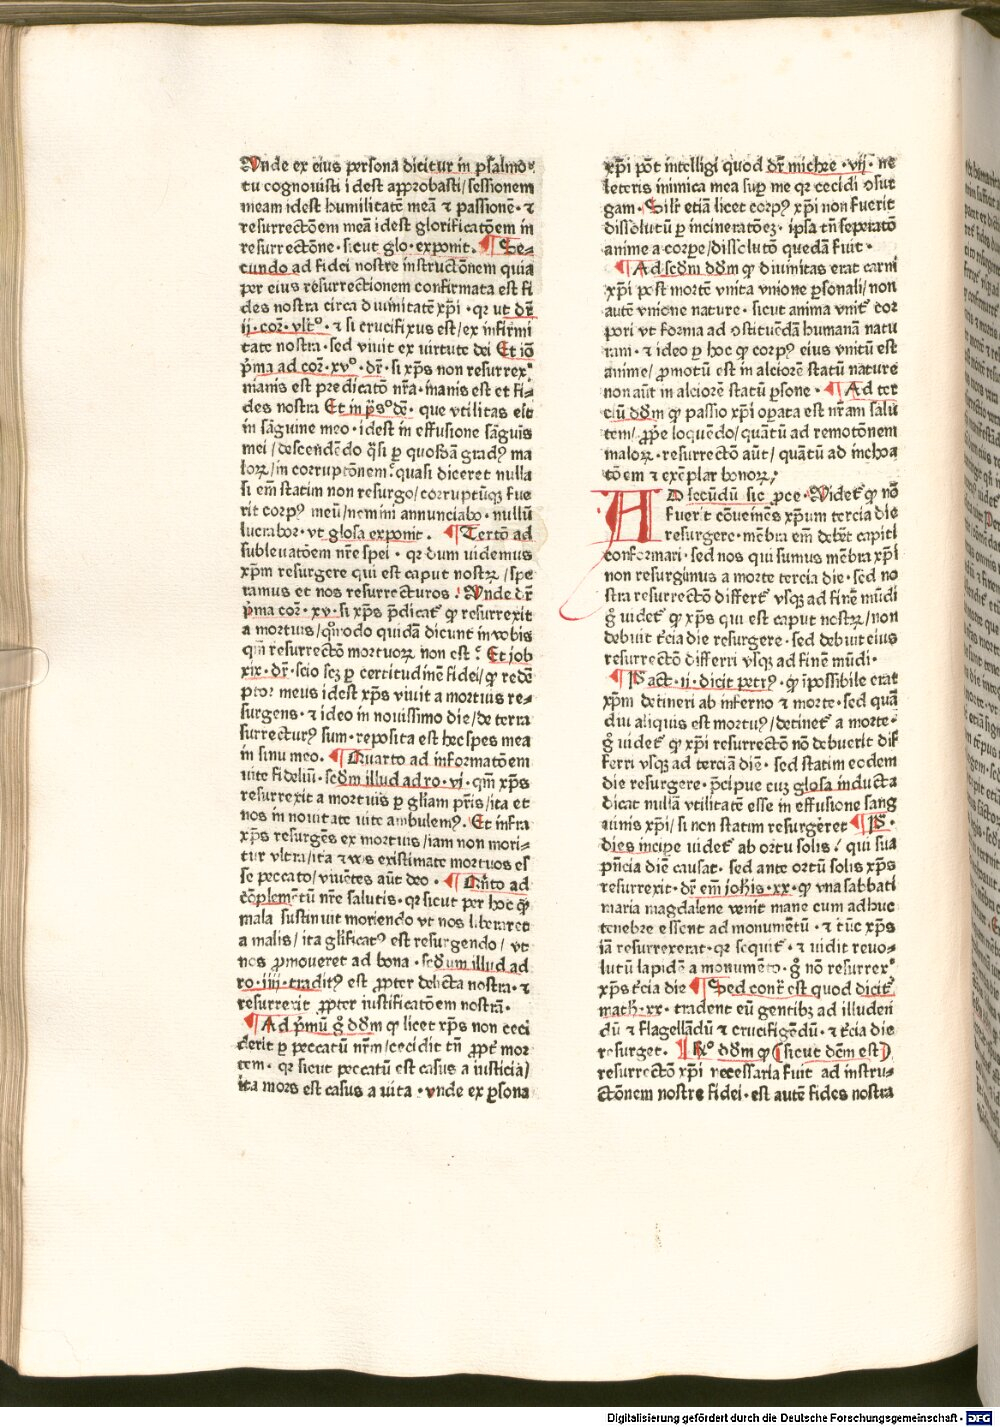 Vnde ex eius persona dicitur in psalmo·
tu cognouisti i dest approbasti/sessionem
meam idest humilitatē meā ⁊ passionē· ⁊
resurrectōem meā idest glorificatōem in
resurrectōne· sicut glo· exponit. ¶ Se⸗
cundo ad fidei nostre instructōnem quia
per eius resurrectionem confirmata est fi
des nostra circa diuinitatē xp̄i · qꝛ ut dr̄
ij· cor̄· vltº· ⁊ si crucifixus est/ex infirmi
tate nostra· sed viuit ex virtute dei Et iō
p̄ma ad cor̄· xvº· dr̄· si xp̄s non resurrex⸗
inanis est predicatō nr̄a· inanis est et fi⸗
des nostra Et in p̄sº dē· que vtilitas est
in sāguine meo· idest in effusione sāguīs
mei/descendēdo q̄si ꝑ quosdā gradꝰ ma
loꝝ/in corruptōnem· quasi diceret nulla
si em̄ statim non resurgo/corruptūqꝫ fue
rit corpꝰ meū/nemini annunciabo· nullū
lucrabor· vt glosa exponit. ¶ Tertō ad
subleuatōem nr̄e spei · qꝛ dum uidemus
xp̄m resurgere qui est caput nostꝝ/spe
ramus et nos resurrecturos· Vnde dr̄
p̄ma cor̄· xv· si xp̄s p̄dicat̄ ꝙ resurrexit
a mortuis/quōodo quidā dicunt in vobis
qm̄ resurrectō mortuoꝝ non est? Et job
xix· dr̄· scio scꝫ ꝑ certitudinē fidei/ꝙ redē
ptor meus idest xp̄s viuit a mortuis re⸗
surgens· ⁊ ideo in nouissimo die/de terra
surrecturꝰ sum· reposita est hec spes mea
in sinu meo. ¶ Quarto ad informatōem
uite fidelium· scd̄m illud ad ro· vi· qm̄ xp̄s
resurrexit a mortuis ꝑ gliam pr̄is/ita et
nos in nouitate uite ambulemꝰ. Et infra
xp̄s resurgēs ex mortuis/iam non mori⸗
tur vltra/ita ⁊ vos existimate mortuos es
se peccato/viuētes aūt deo· ¶ Qn̄to ad
cōplemētū nr̄e salutis· qꝛ sicut per hoc ꝙ
mala sustinuit moriendo vt nos liberaret
a malis/ita glificatꝰ est resurgendo/vt
nos ꝓmoueret ad bona· scd̄um illud ad
ro· iiij· traditꝰ est ꝓpter delicta nostra· ⁊
resurrexit ꝓpter iustificatōem nostrā·
¶ Ad p̄mū g̊ dd̄m ꝙ licet xp̄s non ceci
derit ꝑ peccatū nr̄m/cecidit tn̄ ꝓpt̄ mor
tem· qꝛ sicut peccatū est casus a iusticia/
ita mors est casus a uita· vnde ex ꝑsona
xp̄i pōt intelligi quod dr̄ michee · vij· ne
leteris inimica mea suꝑ me qꝛ cecidi ꝯsur
gam· Silr̄ etiā licet corpꝰ xp̄i non fuerit
dissolutū ꝑ incineratōeꝫ· ipsa tn̄ seperatō
anime a corpe/dissolutō quedā fuit·
¶ Ad scd̄m dd̄m ꝙ diuinitas erat carni
xp̄i post mortē vnita vnione ꝑsonali/non
autē vnione nature· sicut anima vnit̄ cor
pori vt forma ad ꝯstituēdā humanā natu
ram· ⁊ ideo ꝑ hoc ꝙ corpꝰ eius vnitū est
anime/ꝓmotū est in alciorē statū nature
non aūt in alciorē statū ꝑsone· ¶ Ad ter
ciū dd̄m ꝙ passio xp̄i oꝑata est nr̄am salu
tem/ꝓpe loquēdo/quātū ad remotōnem
maloꝝ· resurrectō aūt/quātū ad inchoa
tōem ⁊ exēplar bonoꝝ;
AD secūdū sic ꝓce· Videt̄ ꝙ nō
fuerit cōueniēs xp̄um tercia die
resurgere· mēbra em̄ debēt capiti
conformari· sed nos qui sumus mēbra xp̄i
non resurgimus a morte tercia die· sed no
stra resurrectō differt̄ vsqꝫ ad finē mūdi
g̊ uidet̄ ꝙ xp̄s qui est caput nostꝝ/non
debuit t̄cia die resurgere· sed debuit eius
resurrectō differri vsqꝫ ad finē mūdi·
¶ P̄ act· ij· dicit petrꝰ· ꝙ īpossibile erat
xp̄m detineri ab inferno ⁊ morte· sed quā
diu aliquis est mortuꝰ/detinet̄ a morte·
g̊ uidet̄ ꝙ xp̄i resurrectō nō debuerit dif
ferri vsqꝫ ad terciā diē· sed statim eodem
die resurgere· p̄cipue cuꝫ glosa inducta
dicat nullā vtilitatē esse in effusione sang
uinis xp̄i/si non statim resurgeret ¶ P̄·
dies incipe uidet̄ ab ortu solis/qui sua
p̄ncia diē causat· sed ante ortū solis xp̄s
resurrexit· dr̄ em̄ joh̄is· xx· ꝙ vna sabbati
maria magdalene venit mane cum adhuc
tenebre essent ad monumētū· ⁊ tūc xp̄s
iā resurrexerat· qꝛ sequit̄· ⁊ uidit reuo⸗
lutū lapidē a monumēto· g̊ nō resurrex⸗
xp̄s t̄cia die ¶ Sed contr̄ est quod dicit̄
math· xx· tradent eū gentibꝫ ad illuden
dū ⁊ flagellādū ⁊ crucifigēdū· ⁊ t̄cia die
resurget. ¶ Rº dd̄m ꝙ (sicut dc̄m est)
resurrectō xp̄i necessaria fuit ad instru⸗
ctōnem nostre fidei· est autē fides nostra
Digitalisierung gefördert durch die Deutsche Forschungsgemeinschaft - DFG